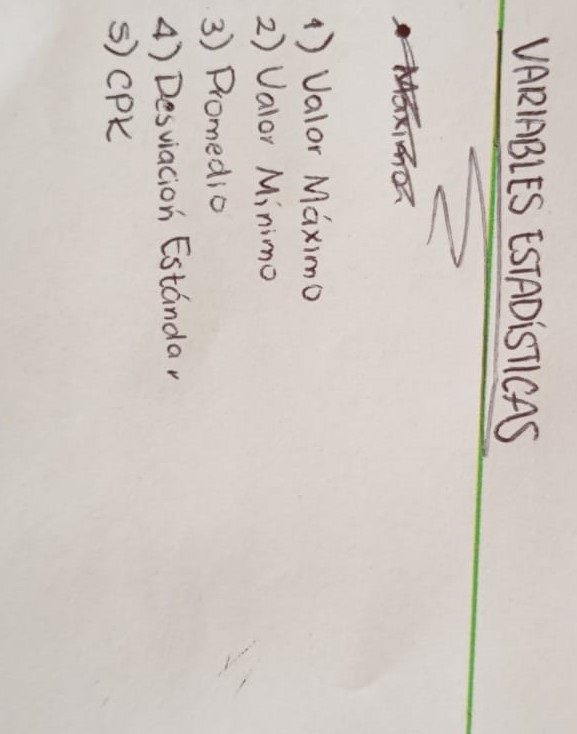 VARIABLES ESTADÍSTICAS
Máximo
1) Valor Máximo
2) Valor Mínimo
3) Promedio
4) Desviación Estándar
5) CPK